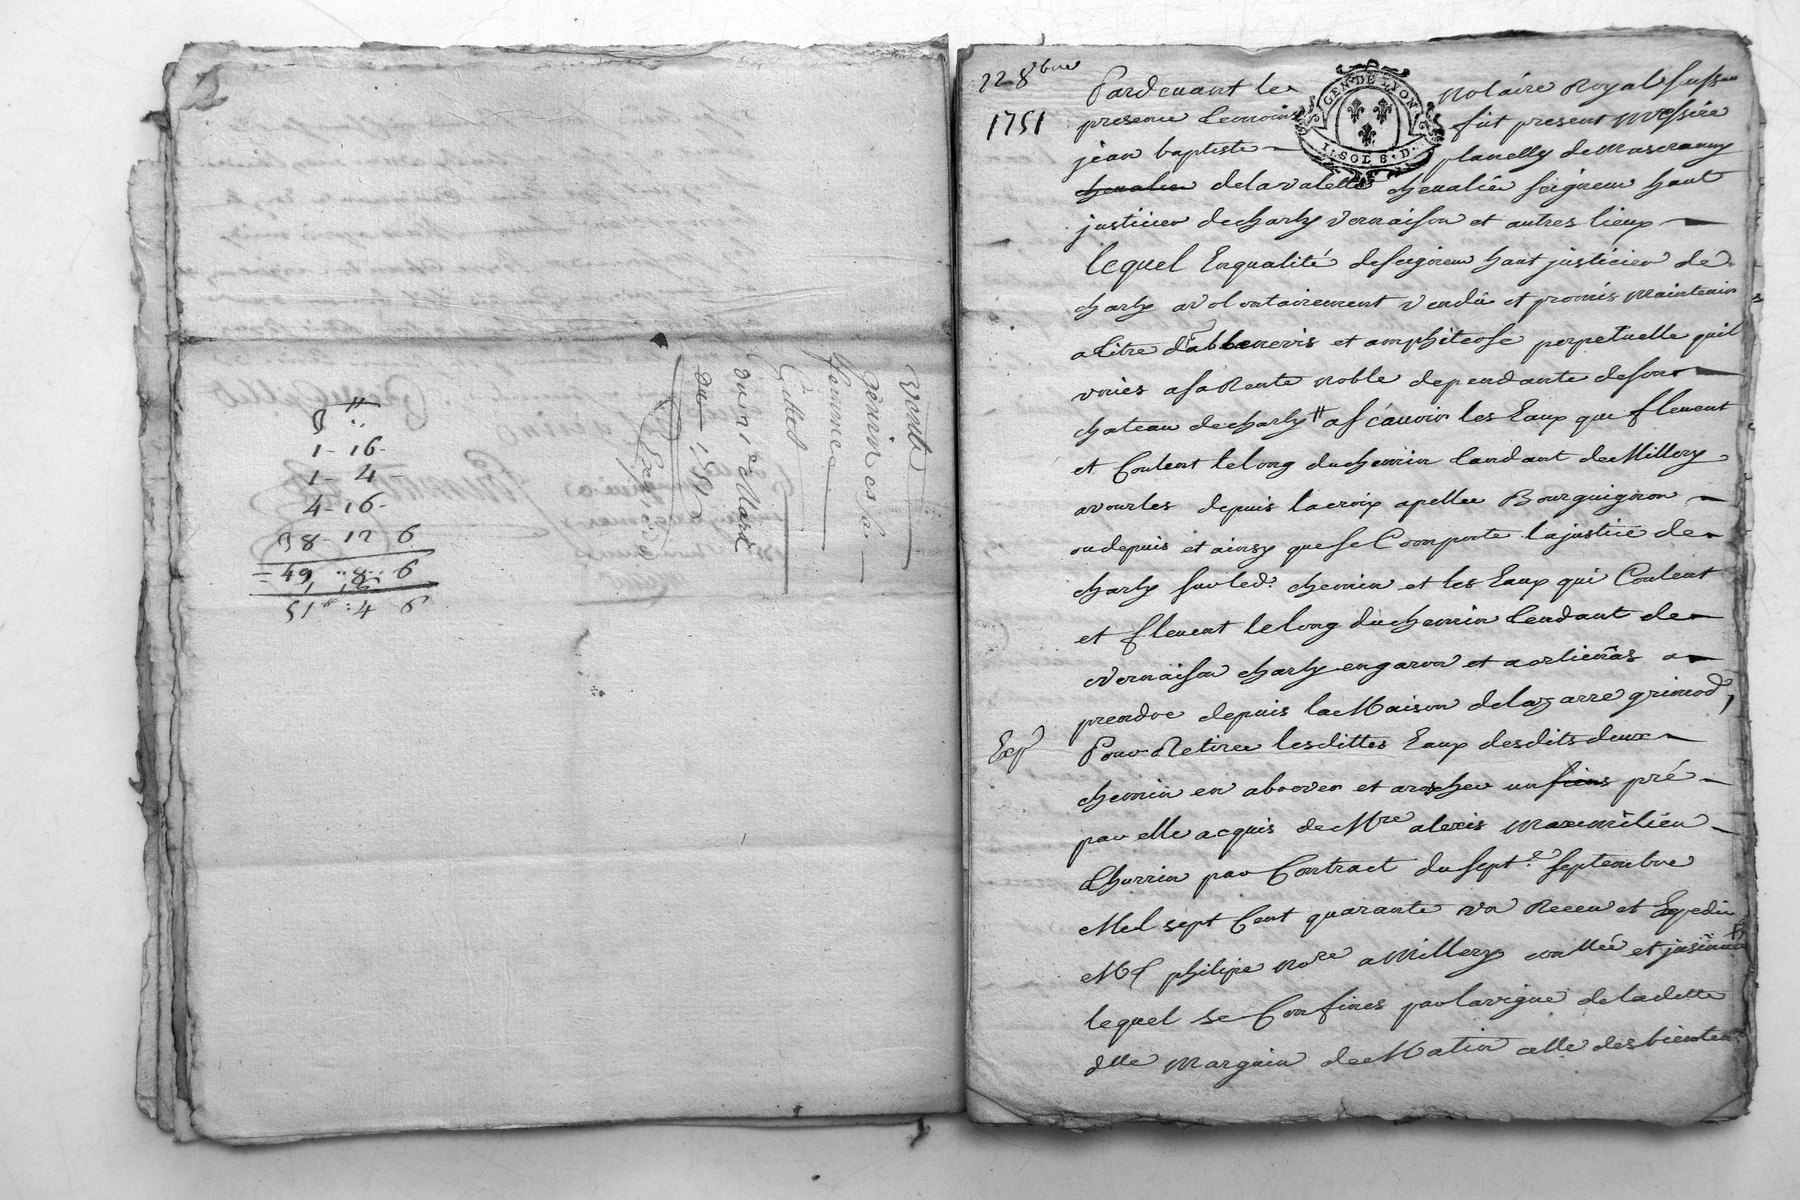 Vente
Genin et sa
femme
Gillet
du 1er Mars
du 1751
Expédié
1 - 16
1 - 4
4 - 16
38 - 12 6
= 49 8 6
51 4 6
22 8bre
1751
GEN. DE LYON
1. SOL 8. D.
Pardevant le notaire Royal susse
presence temoins fut present Messire
jean baptiste planelly de Mascranny
chevalier delavalette chevalier seigneur haut
justicier de charly vernaison et autres lieux
lequel En qualité de seigneur haut justicier de
charly a volontairement vendu et promis maintenir
a titre d'abbenevis et amphiteose perpetuelle quil
vnies a sa Rente noble dependante de son
chateau de charly a sçavoir les Eaux que fleuent
et Coulent le long du chemin tendant de Millery
a vourles depuis la croix apellee Bourguignon
ou depuis et ainsy que se Comporte la justice de
charly sur led. chemin et les Eaux qui Coulent
et fleuent le long du chemin tendant de
vernaison charly en garon et a orlienas a
prendre depuis la Maison de lazarre grimod,
Exp
Pour Retirer lesdittes Eaux desdits deux
chemin en abrever et arrocher un fins pré
par elle acquis de Mre alexis maxemilien
Thurrin par Contract du sept.e septembre
Mil sept Cent quarante un Receu et Expedié
Me philipe nore a Millery conllée et jnsinué
lequel se Confines par la vigne de ladette
dlle Margain de Matin celle des bientten.